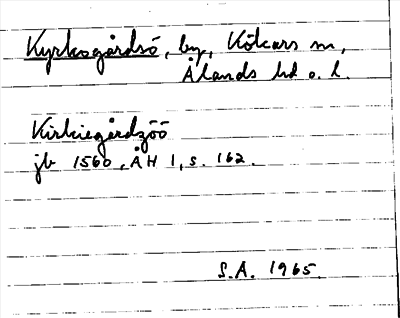 Kyrkogårdsö, by, Kökars sn,
Ålands hd o. l.
Kirkiegårdzöö
jb 1560, ÅH 1, s. 162.
S.A. 1965.